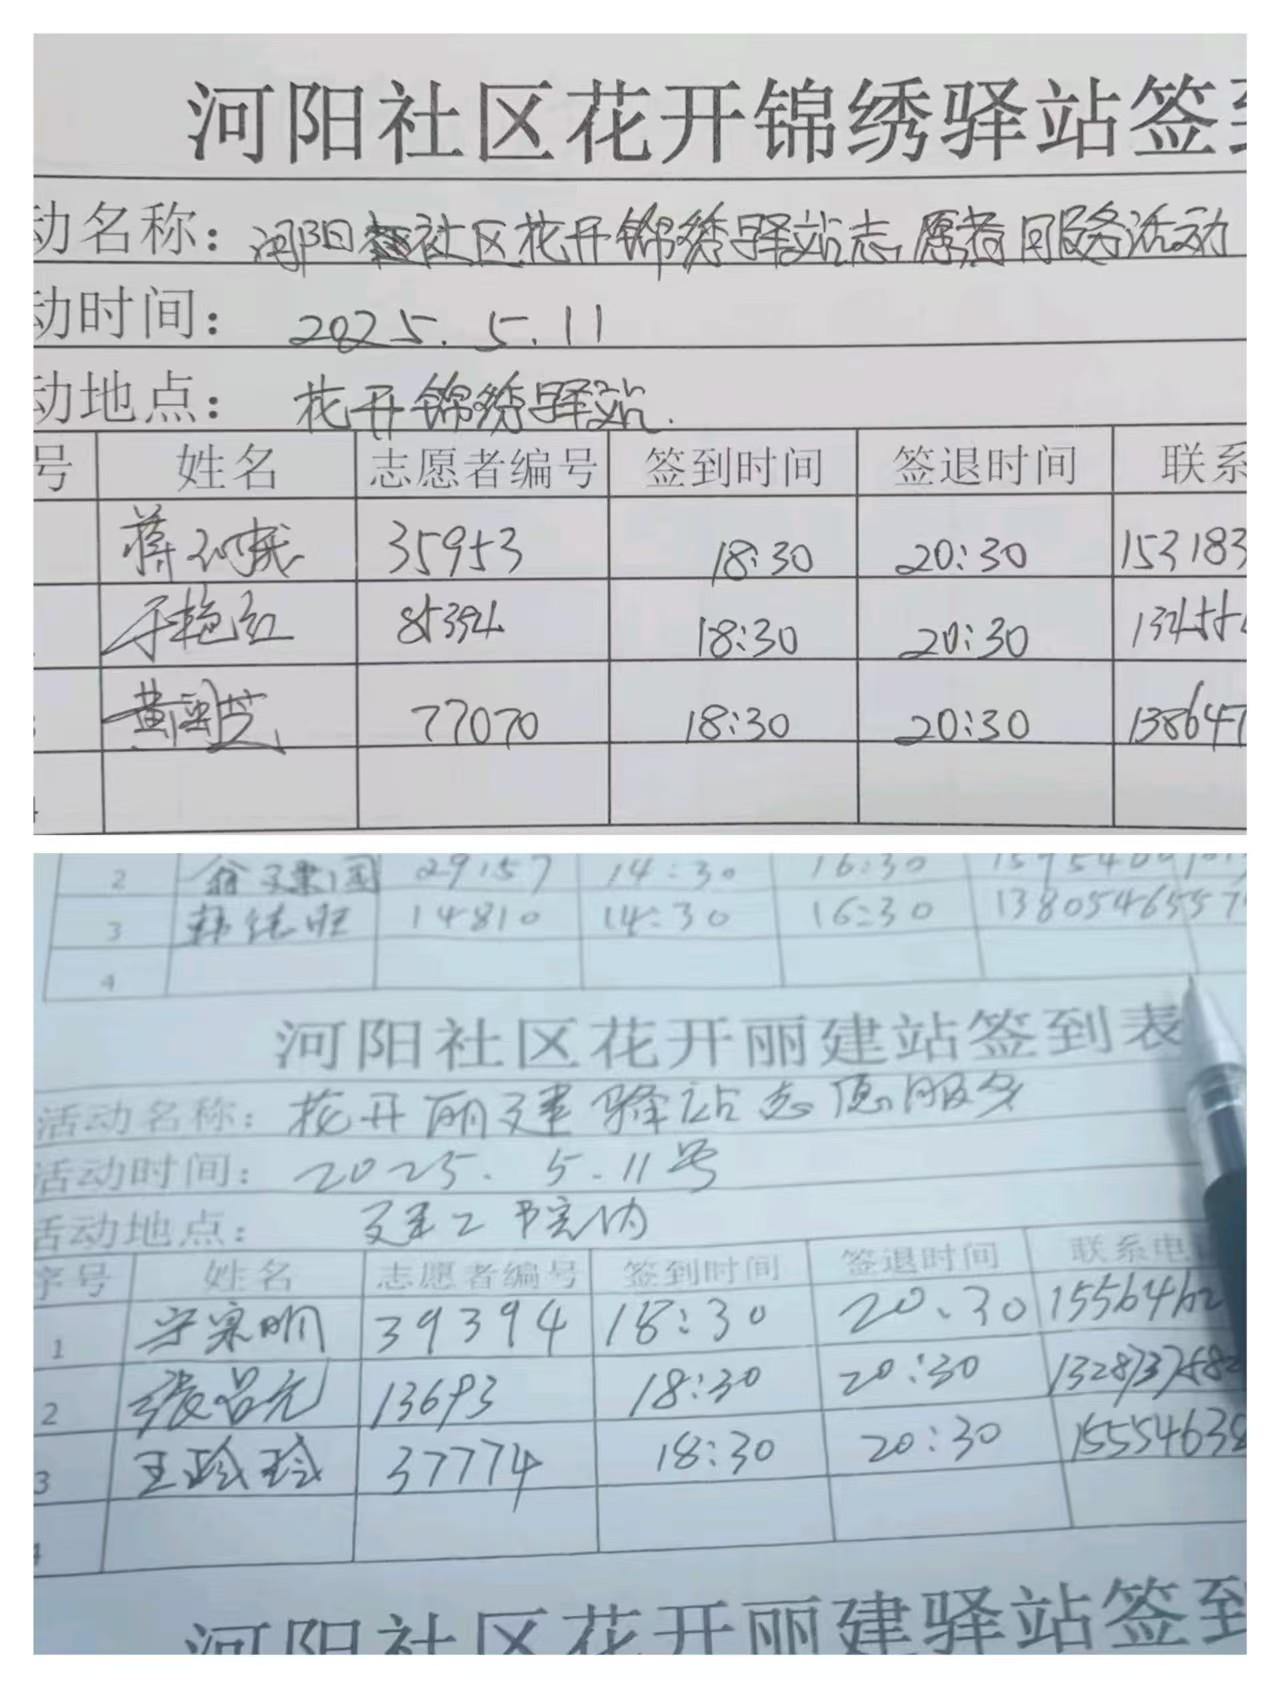 河阳社区花开锦绣驿站签到
动名称：河阳社区花开锦绣驿站志愿者服务活动
动时间：2025.5.11
动地点：花开锦绣驿站.
号 姓名 志愿者编号 签到时间 签退时间 联系
蒋 35953 18:30 20:30 153183
于艳红 85394 18:30 20:30
黄 芝 77070 18:30 20:30 138647
4
2 翁建国 29157 14:30 16:30
3 韩 14810 14:30 16:30 1380546557
4
河阳社区花开丽建站签到表
活动名称：花开丽建驿站志愿服务
活动时间：2025.5.11号
活动地点：建工书院内
序号 姓名 志愿者编号 签到时间 签退时间 联系电
1 明 39394 18:30 20:30 1556462
2 张吕元 13693 18:30 20:30
3 王玲玲 37774 18:30 20:30 15554638
4
河阳社区花开丽建驿站签到